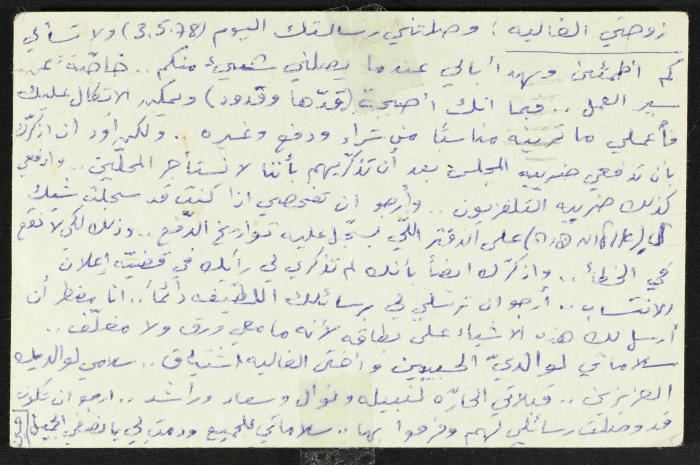 زوجتي الغاليه : وصلتني رسالتك اليوم (3.5.78) ولا تسألي
كم أطمئن ويهدأ بالي عندما يصلني شيىء منكم .. خاصّة عن
سير العمل .. فبما انك أصبحتِ (قدّها وقدود) ويمكن الاتكال عليك
فأعملي ما ترينه مناسبًا من شراء ودفع وغيره .. ولكن أود ان اذكّرك
بأن تدفعي ضريبة المجلس بعد أن تذكّريهم بأننا لا نستأجر المحلّين .. وادفعي
كذلك ضريبة التلفزيون .. وأرجو ان تفحصي اذا كنتِ قد سجلت شيك
على الدفتر اللّي بسجّل عليه تواريخ الدّفع .. وذلك لكي لا نقع
في الخطأ .. واذكرّك ايضاً بأنك لم تذكري لي رأيك في قضيّة إعلان
الانتساب .. أرجو ان ترسلي لي برسائلك اللطيفه دائماً .. انا مضطر أن
أرسل لك هذه الاشياء على بطاقه لأنه ما معي ورق ولا مغلّف ..
سلاماتي لوالديّ الحبيبين واختي الغاليه اشتياق .. سلامي لوالديك
العزيزين .. قبلاتي الحارّه لنبيله ونوال وسعاد وراشد .. ارجو ان تكون
قد وصلت رسائلي لهم وفرحوا بها .. سلاماتي للجميع ودمتِ لي يا نصفي الجميل